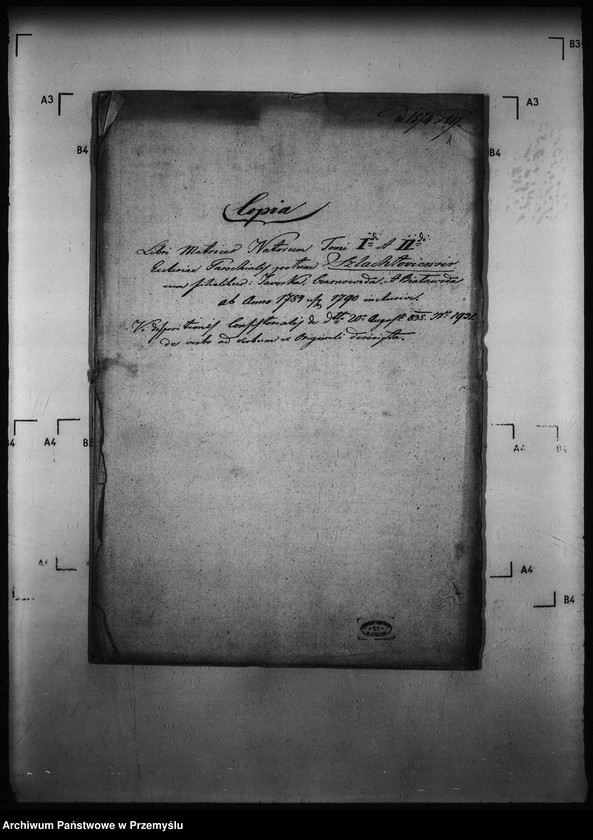 B3
A3
A3
B4
B4
1
Copia
Libri Metrices Natorum Tomi Idi et IIdi
Ecclesiae Parochialis Szlachtoviensis
cum filialibus: Jaworki, Czarnowoda, et Białawoda
ab Anno 1784 usq 1790 inclusive.
V. dispositionis Consistorialis de dtto 20a August 835. No 1921
de verbo ad verbum ex Originali descripta.
A4
A4
B5
A4
B4
A4
A4
B4
Archiwum Państwowe w Przemyślu